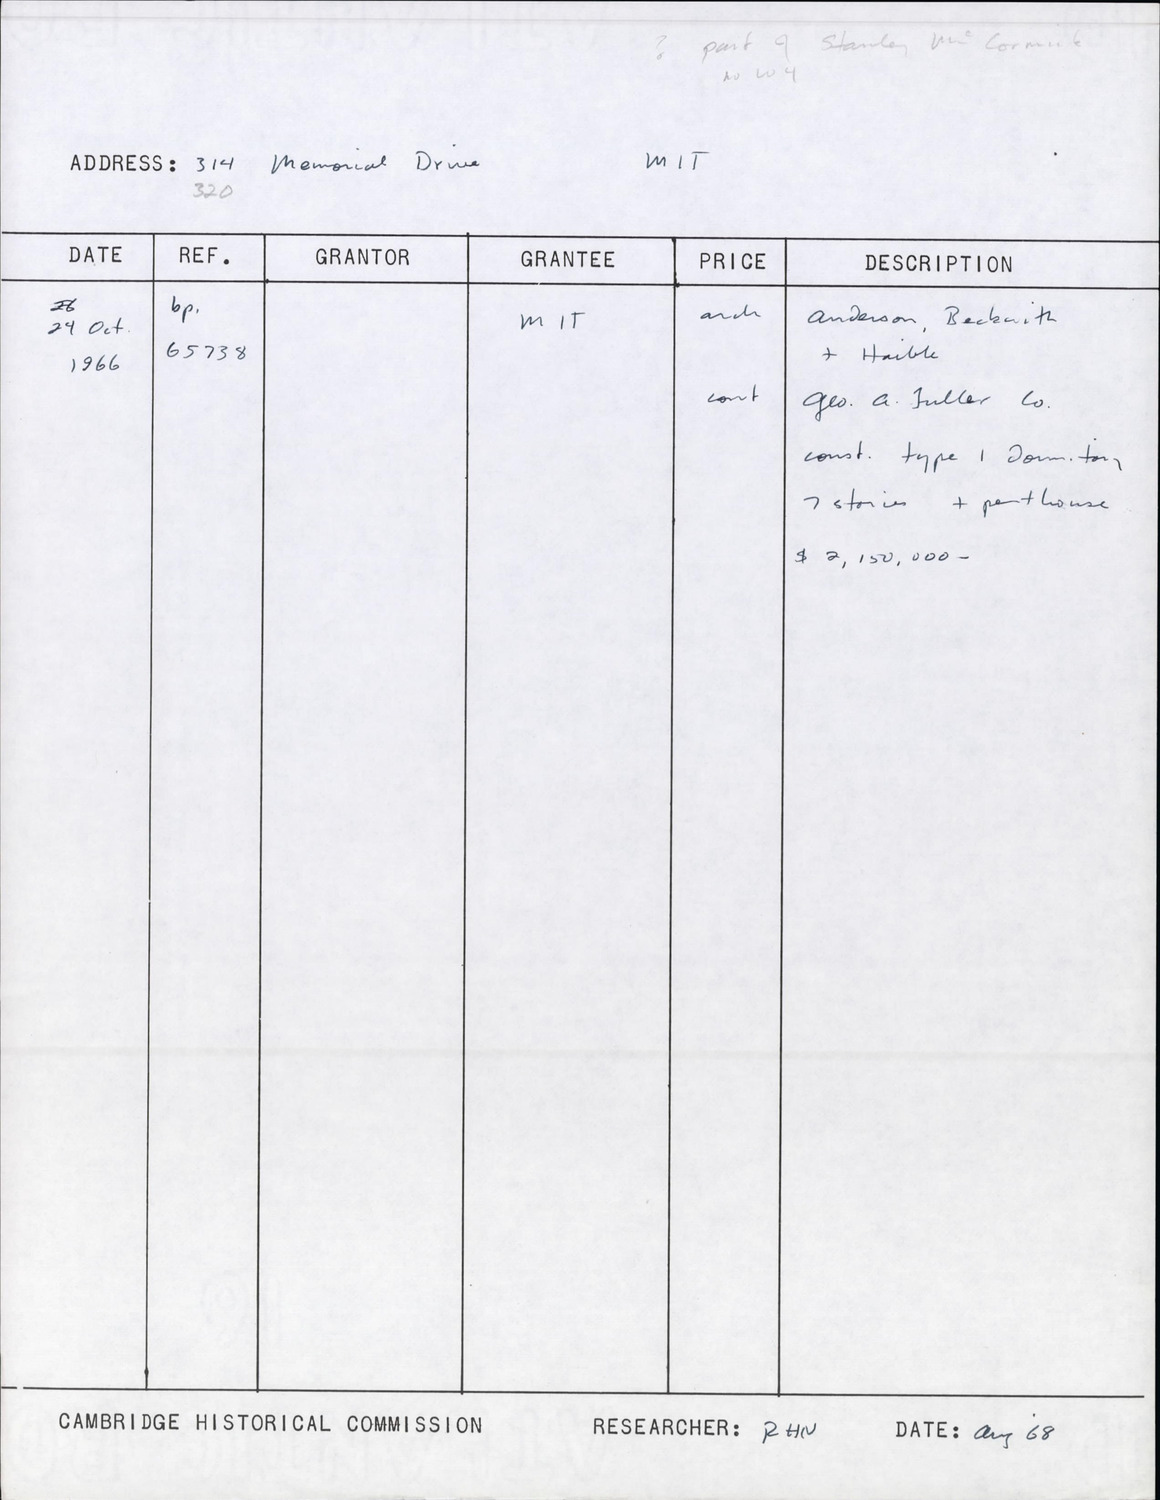 ? part of Stanley McCormick
No W4
ADDRESS: 314 Memorial Drive MIT
320
DATE REF. GRANTOR GRANTEE PRICE DESCRIPTION
24 Oct. 1966 bp. 65738 MIT arch Anderson, Beckwith
+ Haible
cont Geo. A. Fuller Co.
const. type 1 Dormitory
7 stories + penthouse
$ 2,150,000-
CAMBRIDGE HISTORICAL COMMISSION RESEARCHER: RHN DATE: Aug '68